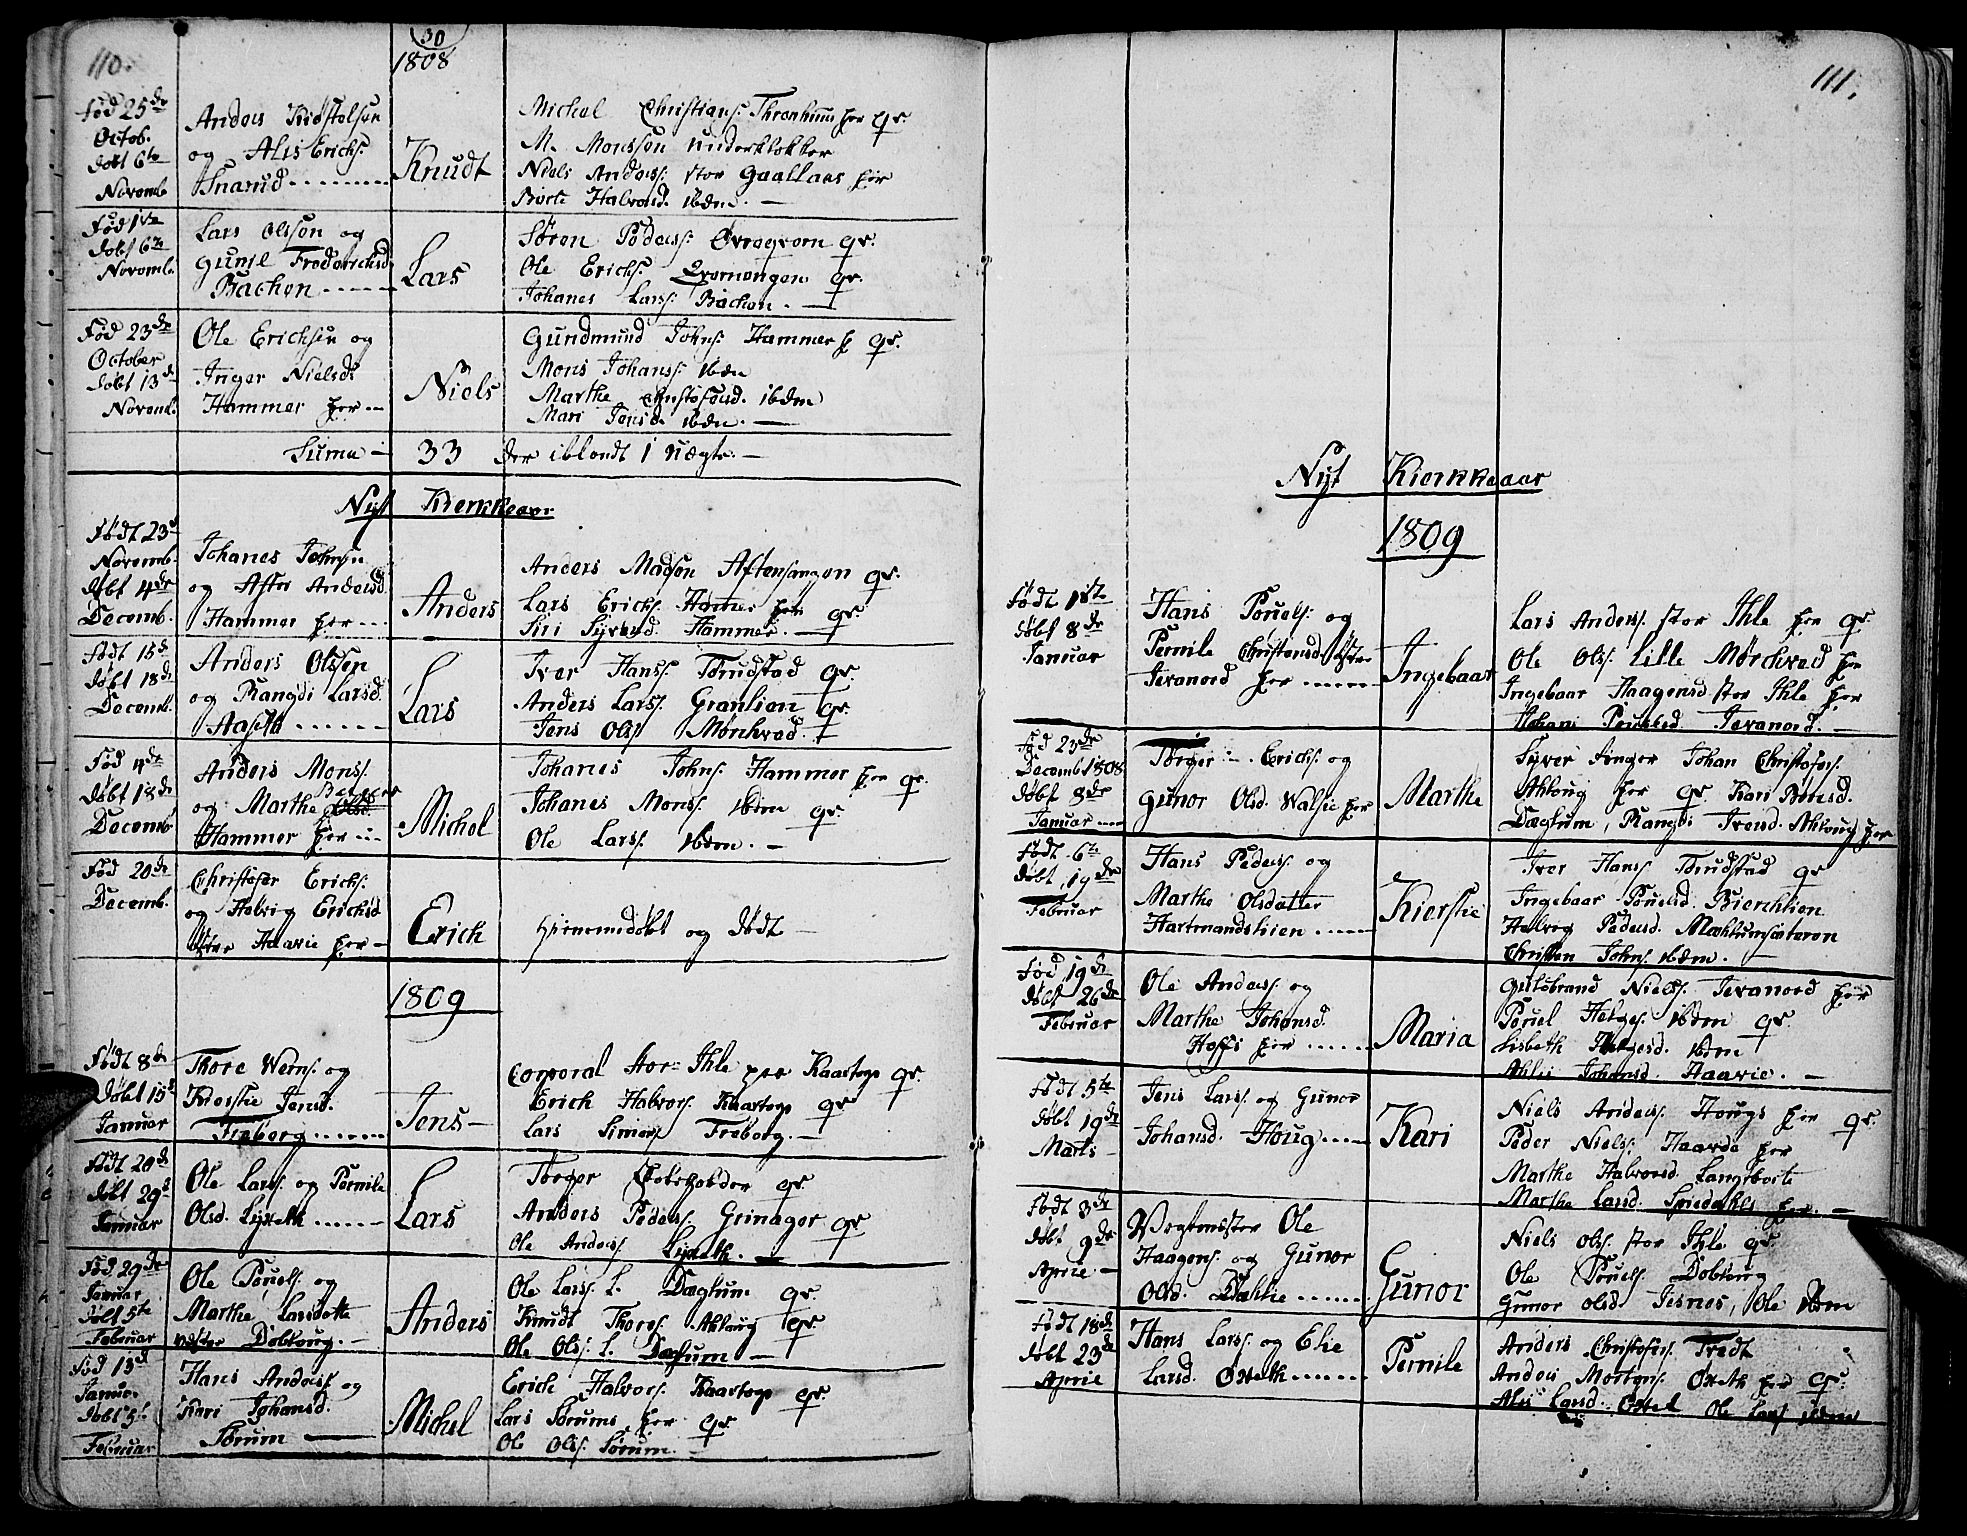 110.
30
1808
Fød 25de
Octob.
døbt 6te
Novemb.
Anders
og Alis Erichs.
Snarud
Knudt
Michel Christians. her qr.
M. Monssen underklokker
Niels Anders. stor Gaallaas her
Birte Halvorsd. ibdm. —
Fød 1ste
døbt 6te
Novemb.
Lars Olsson og
Gunil Frederichsd.
Bachen
Lars
Søren Peders. qr.
Ole Erichs. Qvernengen qr.
Johanes Larss. Bachen. —
Fød 23de
October
døbt 13de
Novemb.
Ole Erichsen og
Inger Nielsd.
Hammer her —
Niels
Gundmund Johns. Hammer h qr.
Mons Johanss. ibdm
Marthe Christofersd. ibdm
Mari Jensd. ibdm. —
Suma — 33 der iblandt 1 uægte. —
Nyt Kierkkeaar
Født 23d
Novemb.
døbt 4de
Decemb.
Johanes Johnsen
og Aften Andersd.
Hammer her
Anders
Anders Madsen Aftensangen qr.
Lars Erichs. Hamer her qr.
Siri Syversd. Hammer. —
Født 15d
døbt 18de
Decemb.
Anders Olssen
og Rangdi Larsd.
Aaseth
Lars
Iver Hanss. Trudstad qr.
Anders Larss. Granlien qr.
Jens Olss. Mørchved. —
Fød 4de
døbt 18de
Decemb.
Anders Monss.
og Marthe
Hammer her
Michel
Johanes Johns. Hammer her qr.
Johanes Monss. ibdm qr.
Ole Larss. ibdm. —
Fød 20de
Decemb.
Christofer Erichs.
og Helvig Erichsd.
Haavie her —
Erich
hiemmedøbt og dødt —
1809
Født 8de
døbt 15d
Januar
Thore Werns. og
Kierstie Jensd.
Freberg
Jens —
Corporal stor Ihle per Kaartorp qr.
Erich Halvors. Kaartorp qr
Lars Simens. Freberg. —
Født 20de
døbt 29d
Januar
Ole Larss. og Pernile
Olsd. Lyseth
Lars
Torger qr.
Anders Peders. Grinager qr
Ole Anderss. Lyseth. —
Fød 29de
Januar
døbt 5te
Februar
Ole Pouels. og
Marthe Larsdotte
vester Dobloug. —
Anders
Ole Larss. L. Dæglum qr.
Knudt Thores. Ahloug qr.
Ole Olss. L. Dæglum —
Fød 13d
Januar
døbt 5t
Februar
Hans Anderss. og
Kari Johansd.
Sørum —
Michel
Erich Halvors. Kaartorp qr.
Lars Sørum her qr.
Ole Olss. Sørum. —
111.
Nyt Kierkkeaar
1809
Født 1ste
døbt 8de
Januar
Hans Pouels. og
Pernile Christensd. Øster
Jevanord her
Ingebaar
Lars Anders. stor Ihle her qr.
Ole Olss. Lille Mørchved her
Ingebaar Haagensd. stor Ihle her
Pouelsd. Jevanord. —
Fød 23de
Decemb 1808
døbt 8de
Januar
Torger Erichs. og
Gunor Olsd. Walsie her
Marthe
Syver Finger Johan Christofers.
Ahloug her qr. Kari
Dæglum, Rangdi Ivensd. Ahloug her
Født 6te
døbt 19de
Februar
Hans Peders. og
Marthe Olsdatter
Hartmandshien
Kierstie
Iver Hanss. Trudstad qr
Ingebaar Pouelsd. Bierchlien
Helvig Pedersd. Mæhlumsæteren
Christen Johns. ibdm. —
Fød 19de
døbt 26de
Februar
Ole Anderss. og
Marthe Johansd.
Hoffs her
Maria
Gulbrand Nielss. Jevanord her
Pouel Helges. ibdm qr.
Lisbeth Helgesd. ibdm
Ahlis Johansd. Haavie. —
Født 5te
døbt 19de
Marts —
Jens Larss. og Gunor
Johansd. Houg
Kari
Niels Anders. Hougs her qr.
Peder Niels. Haarde her
Marthe Halvorsd.
Marthe Larsd. her. —
Født 3de
døbt 9de
Aprie —
Vegtmester Ole
Haagens. og Gunor
Olsd. Dæhlie
Gunor
Niels Olss. stor Ihle qr.
Ole Pouels. Dobloug
Gunor Olsd Jesnes, Ole ibdm
Født 18de
døbt 23de
Aprie
Hans Larss. og Elie
Larsd. Øveth
Pernile
Anders Christofers. Tredt
Anders Mortens. Øveth her qr.
Alis Larsd. Ole Lars ibdm